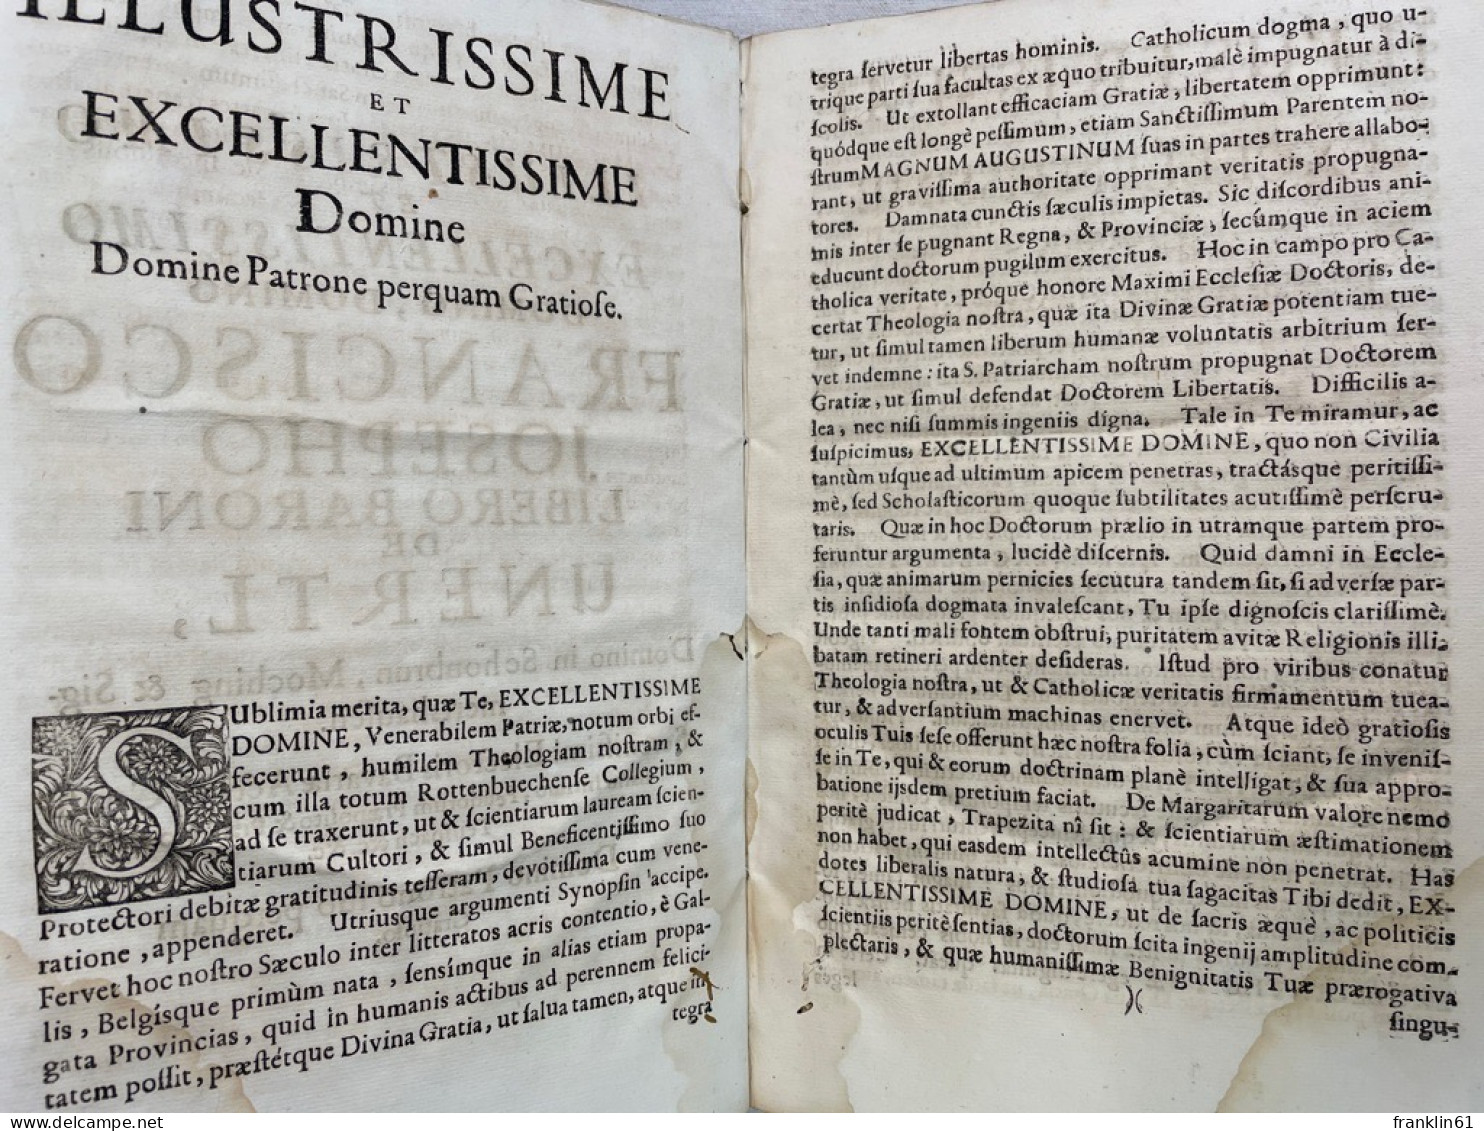 ILLUSTRISSIME
ET
EXCELLENTISSIME
Domine
Domine Patrone perquam Gratioſe.
SUblimia merita, quæ Te, EXCELLENTISSIME
DOMINE, Venerabilem Patriæ, notum orbi ef-
fecerunt, humilem Theologiam noſtram, &
cum illa totum Rottenbuechenſe Collegium,
ad ſe traxerunt, ut & ſcientiarum lauream ſcien-
tiarum Cultori, & ſimul Beneficentiſſimo ſuo
Protectori debitæ gratitudinis teſſeram, devotiſſima cum vene-
ratione, appenderet. Utriusque argumenti Synopſin accipe.
Fervet hoc noſtro Sæculo inter litteratos acris contentio, è Gal-
lis, Belgísque primùm nata, ſensímque in alias etiam propa-
gata Provincias, quid in humanis actibus ad perennem felici-
tatem poſſit, præſtétque Divina Gratia, ut ſalua tamen, atque in
tegra
tegra ſervetur libertas hominis. Catholicum dogma, quo u-
trique parti ſua facultas ex æquo tribuitur, malè impugnatur à di-
ſcolis. Ut extollant efficaciam Gratiæ, libertatem opprimunt:
quódque eſt longè peſſimum, etiam Sanctiſſimum Parentem no-
ſtrum MAGNUM AUGUSTINUM ſuas in partes trahere allabo-
rant, ut graviſſima authoritate opprimant veritatis propugna-
tores. Damnata cunctis ſæculis impietas. Sic diſcordibus ani-
mis inter ſe pugnant Regna, & Provinciæ, ſecúmque in aciem
educunt doctorum pugilum exercitus. Hoc in campo pro Ca-
tholica veritate, próque honore Maximi Eccleſiæ Doctoris, de-
certat Theologia noſtra, quæ ita Divinæ Gratiæ potentiam tue-
tur, ut ſimul tamen liberum humanæ voluntatis arbitrium ſer-
vet indemne: ita S. Patriarcham noſtrum propugnat Doctorem
Gratiæ, ut ſimul defendat Doctorem Libertatis. Difficilis a-
lea, nec niſi ſummis ingeniis digna. Tale in Te miramur, ac
ſuſpicimus, EXCELLENTISSIME DOMINE, quo non Civilia
tantùm uſque ad ultimum apicem penetras, tractásque peritiſſi-
mè, ſed Scholaſticorum quoque ſubtilitates acutiſſimè perſcru-
taris. Quæ in hoc Doctorum prælio in utramque partem pro-
feruntur argumenta, lucidè diſcernis. Quid damni in Eccle-
ſia, quæ animarum pernicies ſecutura tandem ſit, ſi adverſæ par-
tis inſidioſa dogmata invaleſcant, Tu ipſe dignoſcis clariſſimè.
Unde tanti mali fontem obſtrui, puritatem avitæ Religionis illi-
batam retineri ardenter deſideras. Iſtud pro viribus conatur
Theologia noſtra, ut & Catholicæ veritatis firmamentum tuea-
tur, & adverſantium machinas enervet. Atque ideò gratioſis
oculis Tuis ſeſe offerunt hæc noſtra folia, cùm ſciant, ſe inveniſ-
ſe in Te, qui & eorum doctrinam planè intelligat, & ſua appro-
batione ijsdem pretium faciat. De Margaritarum valore nemo
peritè judicat, Trapezita nî ſit: & ſcientiarum æſtimationem
non habet, qui easdem intellectûs acumine non penetrat. Has
dotes liberalis natura, & ſtudioſa tua ſagacitas Tibi dedit, EX-
CELLENTISSIME DOMINE, ut de ſacris æquè, ac politicis
ſcientiis peritè ſentias, doctorum ſcita ingenij amplitudine com-
plectaris, & quæ humaniſſimæ Benignitatis Tuæ prærogativa
)(
ſingu-
franklin61